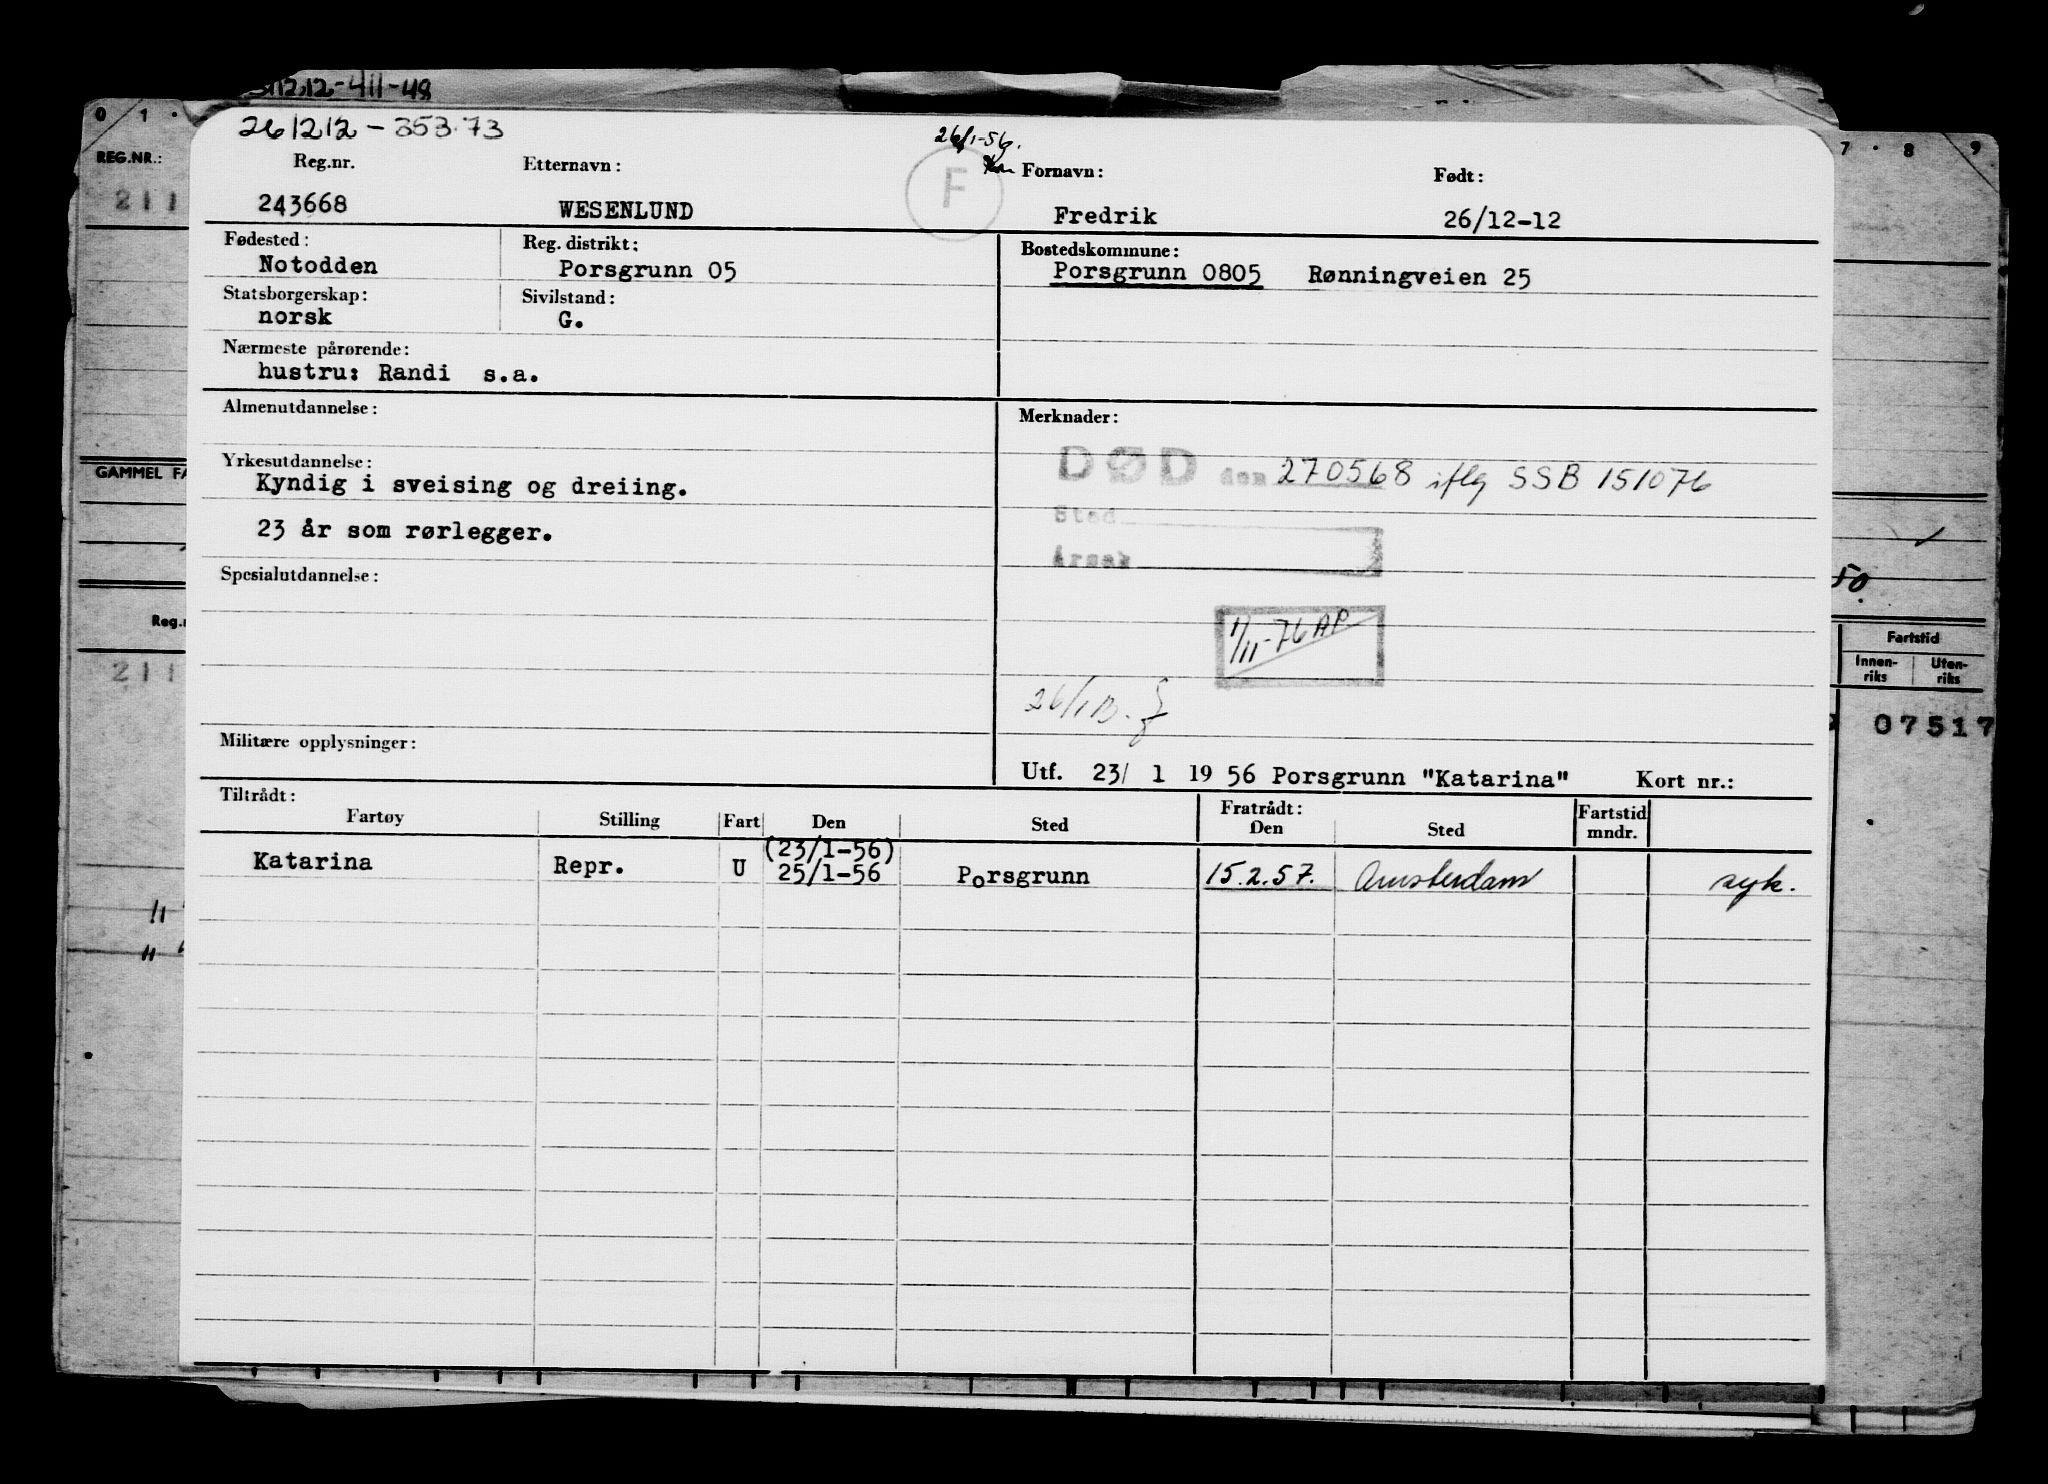 1212-411-48
0 1 .
7 . 8 9
REG.NR.:
211
261212-353.73
26/1-56.
Reg.nr. Etternavn: F Fornavn: Født:
243668 WESENLUND Fredrik 26/12-12
Fødested: Reg. distrikt: Bostedskommune:
Notodden Porsgrunn 05 Porsgrunn 0805 Rønningveien 25
Statsborgerskap: Sivilstand:
norsk G.
Nærmeste pårørende:
hustru: Randi s.a.
Almenutdannelse: Merknader:
Yrkesutdannelse:
DØD den 270568 iflg SSB 151076
Kyndig i sveising og dreiing.
Sted
23 år som rørlegger.
Årsak
Spesialutdannelse:
1/11-76 AP
26/1
Militære opplysninger:
Utf. 23/ 1 19 56 Porsgrunn "Katarina" Kort nr.:
Tiltrådt: Fratrådt: Fartstid
Fartøy Stilling Fart Den Sted Den Sted mndr.
(23/1-56)
Katarina Repr. U 25/1-56 Porsgrunn 15.2.57. Amsterdam syk.
GAMMEL FA
Reg.n
211
11
11
50.
Fartstid
Innen-riks Uten-riks
07517